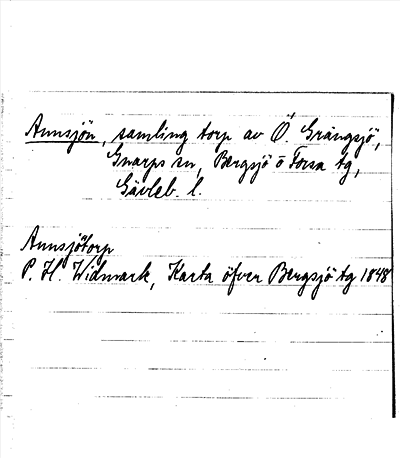 Annsjön, samling torp av Ö. Grängsjö,
Gnarps sn, Bergsjö o Forsa tg,
Gävleb. l.
Annsjötorp
P. H. Widmark, Karta öfver Bergsjö tg 1848